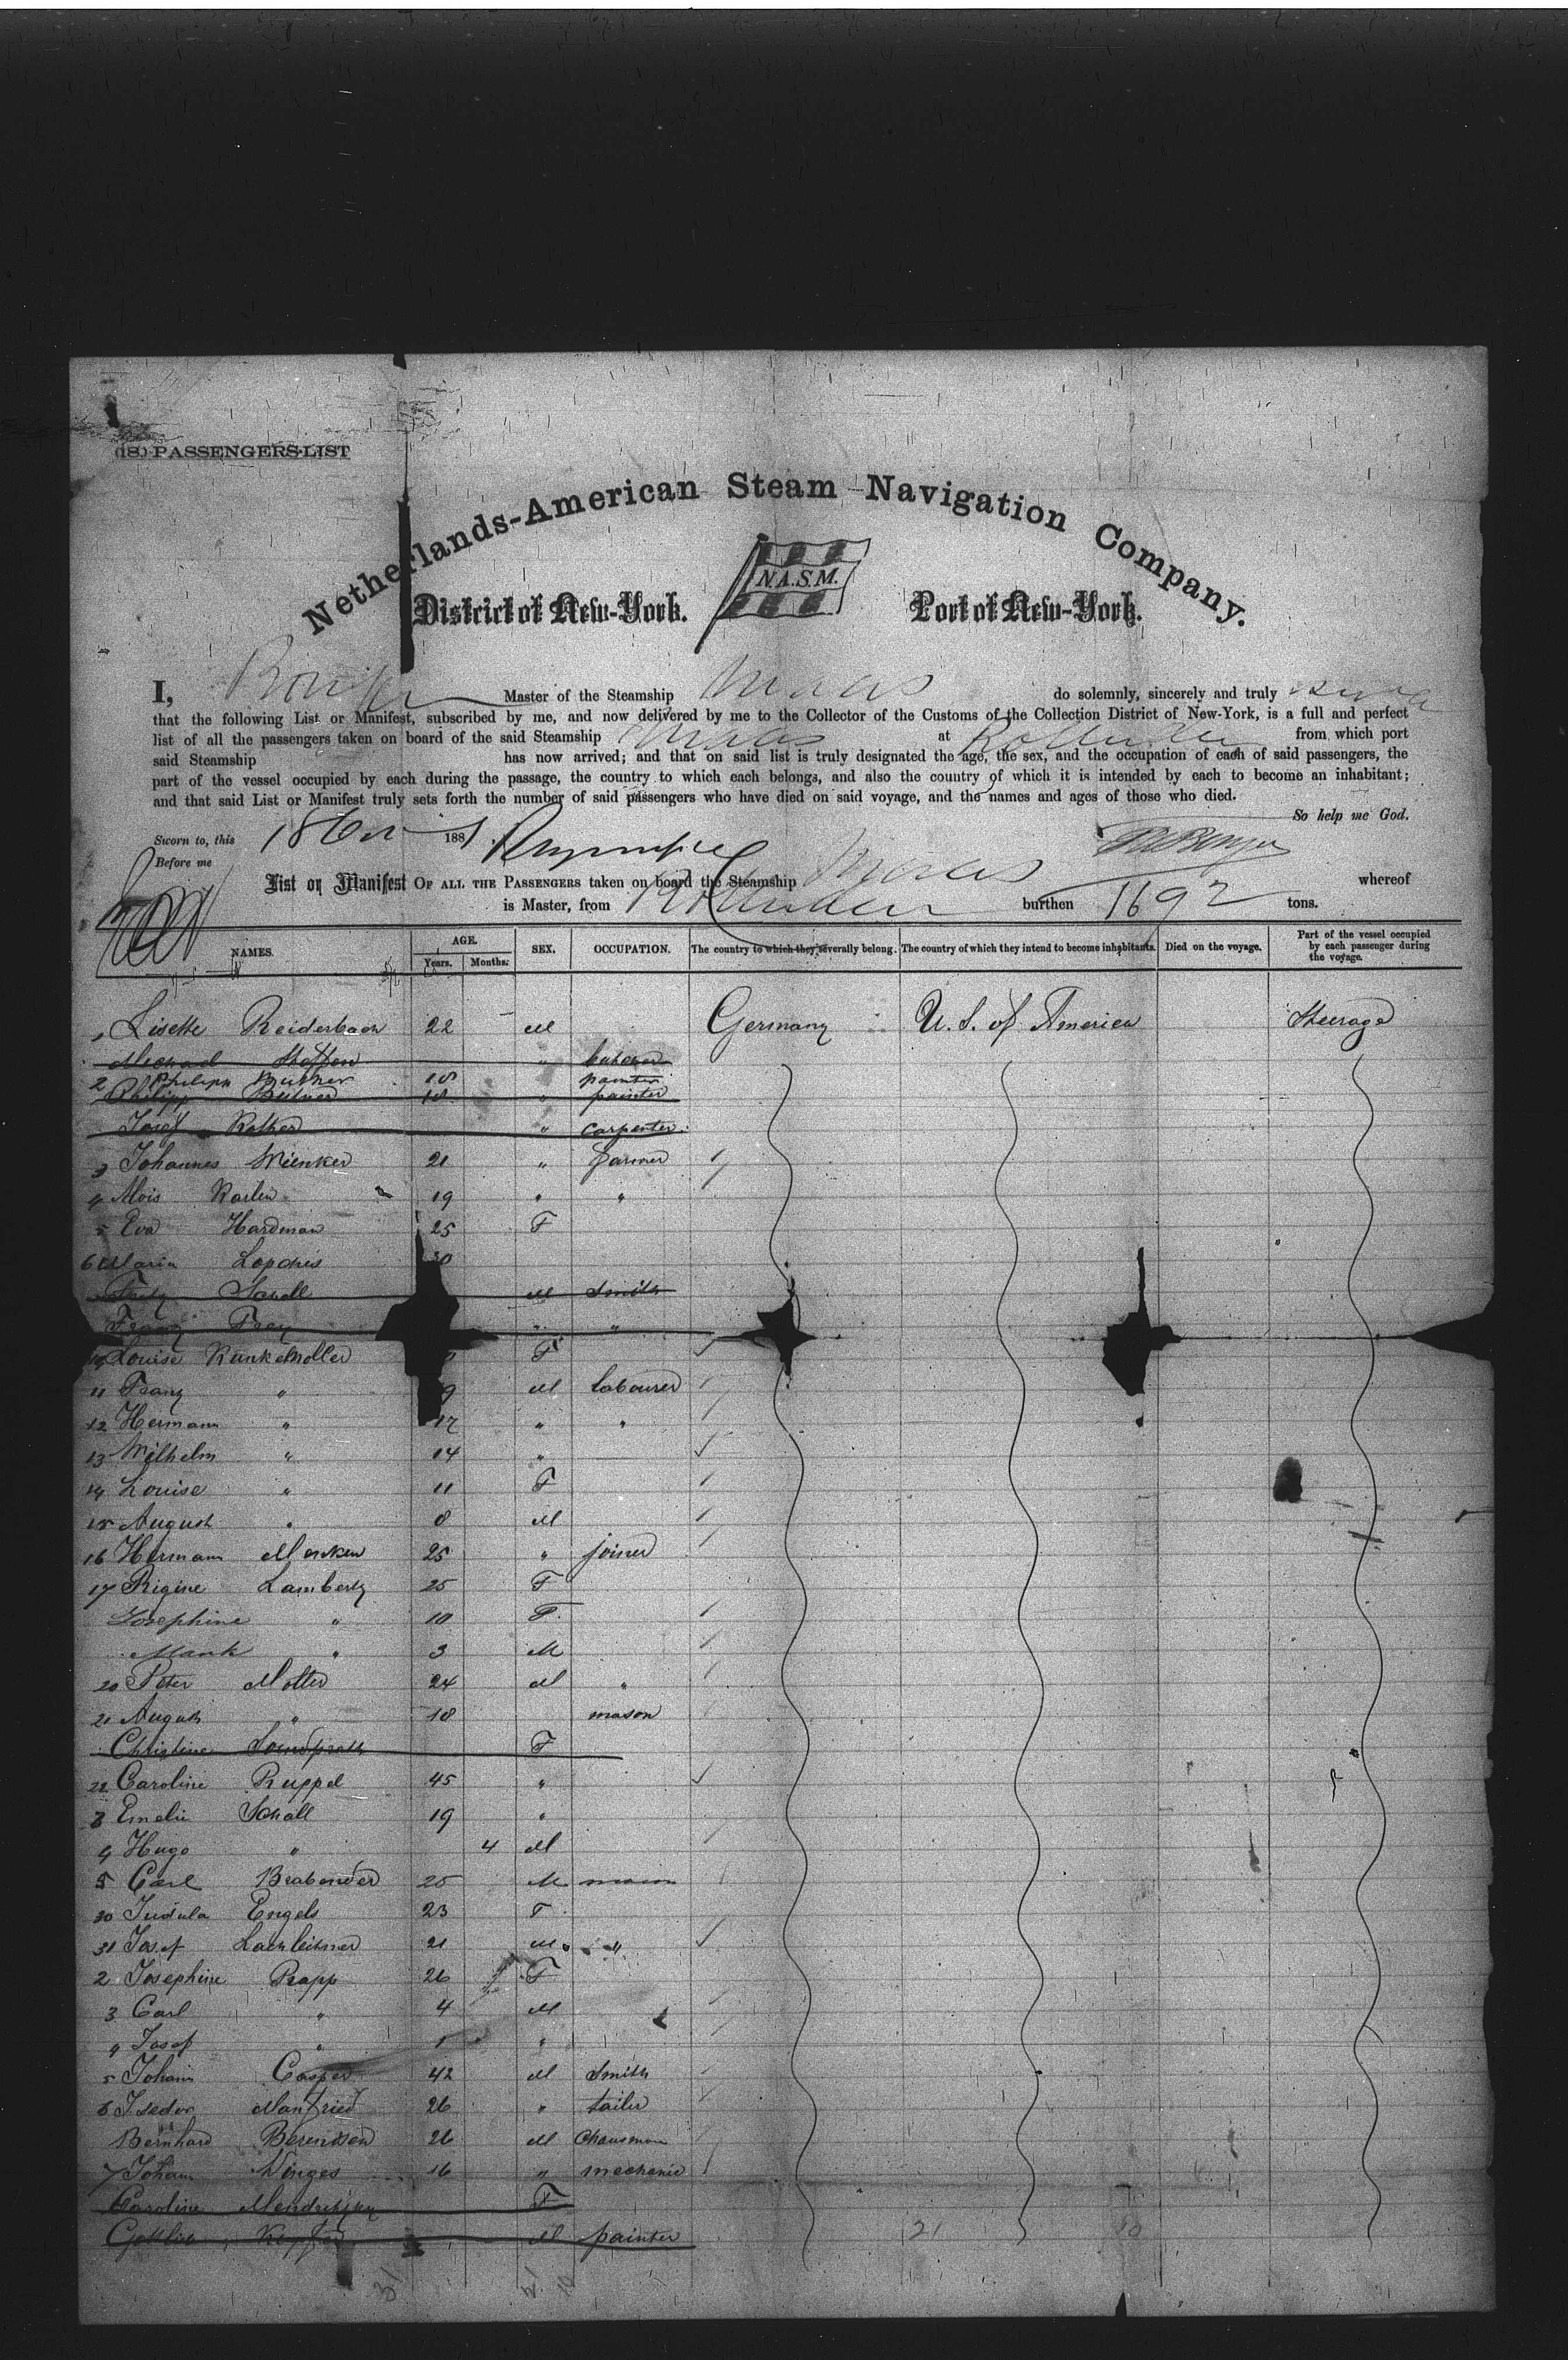 (18) PASSENGERS-LIST
Netherlands-American Steam Navigation Company.
N.A.S.M.
District of New-York. Port of New-York.
I, Master of the Steamship Maas do solemnly, sincerely and truly
that the following List or Manifest, subscribed by me, and now delivered by me to the Collector of the Customs of the Collection District of New-York, is a full and perfect
list of all the passengers taken on board of the said Steamship Maas at Rotterdam from which port
said Steamship has now arrived; and that on said list is truly designated the age, the sex, and the occupation of each of said passengers, the
part of the vessel occupied by each during the passage, the country to which each belongs, and also the country of which it is intended by each to become an inhabitant;
and that said List or Manifest truly sets forth the number of said passengers who have died on said voyage, and the names and ages of those who died.
So help me God.
Sworn to, this 188
Before me
List or Manifest OF ALL THE PASSENGERS taken on board the Steamship Maas whereof
is Master, from Rotterdam burthen 1692 tons.
NAMES. AGE. Years. Months. SEX. OCCUPATION. The country to which they severally belong. The country of which they intend to become inhabitants. Died on the voyage. Part of the vessel occupied by each passenger during the voyage.
1 Lisette Reiderbach 22 M Germany U. S. of America Steerage
" butcher
2 Philipp 18 painter
Philipp 18 " painter
Josef Rother " carpenter
3 Johannes 21 " farmer
4 Alois 19 " "
5 Eva Hardman 25 F
6 Maria 30
Fritz Schell M Smith
Franz Frey " "
10 Louise Runkelholler F
11 Franz " 9 M labourer
12 Hermann " 17 " "
13 Wilhelm " 14 "
14 Louise " 11 F
15 August " 8 M
16 Hermann 25 " joiner
17 Rigine Lambertz 25 F
Josephine " 10 F
" 3 M
20 Peter Moller 24 M "
21 August " 18 mason
Christine F
22 Caroline Ruppel 45 "
3 Emelie Schall 19 "
4 Hugo " 4 M
5 Carl Brabender 25 M mason
30 Engels 23 F
31 Josef 21 M "
2 Josephine Rapp 26 F
3 Carl " 4 M
4 Josef " 1 "
5 Johann Casper 42 M Smith
6 Isedor Manfried 26 " tailer
Bernhard Berendsen 26 M
7 Johann Winges 16 " mechenic
Caroline F
Gottlieb M painter
21 10
31 21 10